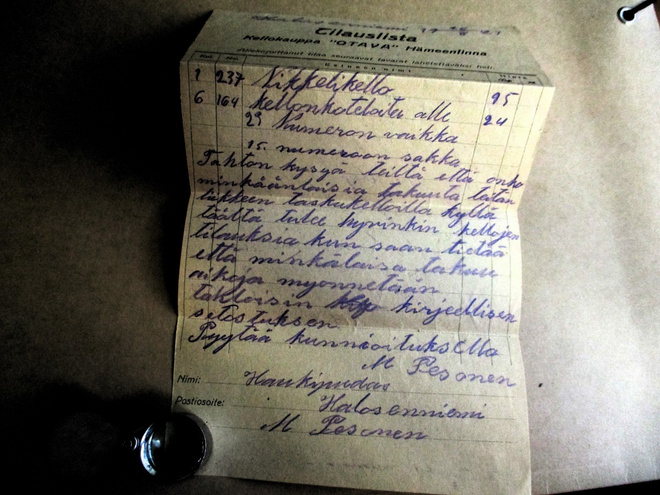 Tilauslista
Kellokauppa "OTAVA" Hämeenlinna
1 237 Nikkelikello 95
6 164 kellonkoteloita alle 24
29 Numeron vaikka
15 numeroon sakka
Tahton kysyä teiltä että onko
minkäänlaisia takuuta teitän
liikkeen taskukelloilla kyllä
täältä tulee hyvinkin kellojen
tilauksia kun saan tietää
että minkälaisa takuu
aikoja myonnetään
tahtoisin kirjeellisen
selostuksen
Pyytää kunnioituksella
M Pesonen
Nimi: Haukipudas
Postiosoite: Halosenniemi
M Pesonen